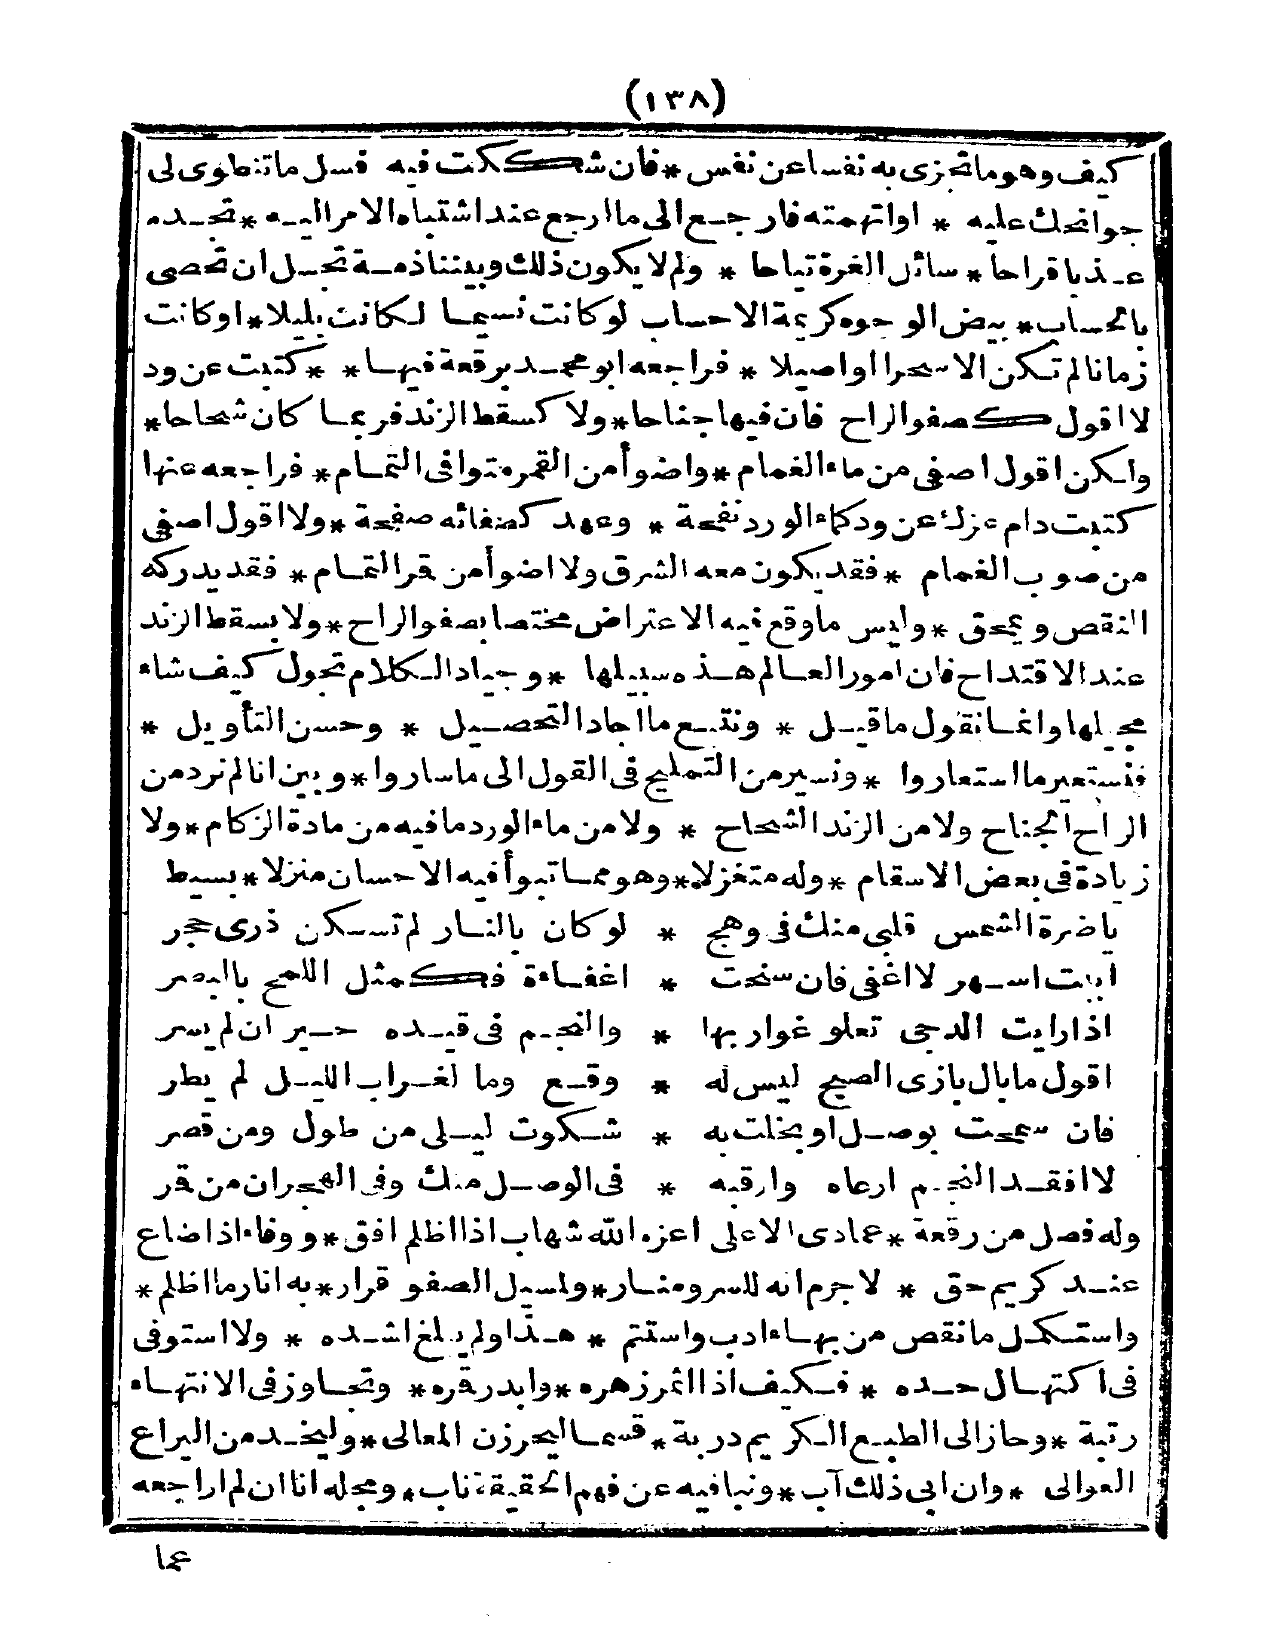 (١٣٨)
كيف وهو ما تجزى به نفسا عن نفس * فان شككت فيه فسل ما تنطوى لى
جوانحك عليه * او اتهمته فارجع الى ما ارجع عند اشتباه الامر اليه * تجده
عذبا قراحا * سائل الغرة تياحا * ولم لا يكون ذلك وبيننا ذمة تجل ان تحصى
بالحساب * بيض الوجوه كريمة الاحساب لو كانت نسيما لكانت بليلا * او كانت
زمانا لم تكن الا سحرا او اصيلا * فراجعه ابو محمد برقعة فيها * * كتبت عن ود
لا اقول كصفو الراح فان فيها جناحا * ولا كسقط الزند فربما كان شحاحا *
ولكن اقول اصفى من ماء الغمام * واضوأ من القمر متوافى التمام * فراجعه عنها
كتبت دام عزك عن ود كماء الورد نفحة * وعهد كصفائه صفحة * ولا اقول اصفى
من صوب الغمام * فقد يكون معه الشرق ولا اضوأ من قمر التمام * فقد يدركه
النقص ويمحق * وليس ما وقع فيه الاعتراض مختصا بصفو الراح * ولا بسقط الزند
عند الاقتداح فان امور العالم هذه سبيلها * وجياد الكلام تجول كيف شاء
مجيلها وانما نقول ما قيل * ونتبع ما اجاد التحصيل * وحسن التأويل *
فنستعير ما استعاروا * ونسير من التمليح فى القول الى ما ساروا * وبين انا لم نرد من
الراح الجناح ولا من الزند الشحاح * ولا من ماء الورد ما فيه من مادة الزكام * ولا
زيادة فى بعض الاسقام * وله متغزلا * وهو مما تبوأ فيه الاحسان منزلا * بسيط
يا ضرة الشمس قلبى منك فى وهج * لو كان بالنار لم تسكن ذرى حجر
ابيت اسهر لا اغفى فان سنحت * اغفاءة فكمثل اللمح بالبصر
اذا رايت الدجى تعلو غواربها * والنجم فى قيده حيران لم يسر
اقول ما بال بازى الصبح ليس له * وقع وما لغراب الليل لم يطر
فان سمحت بوصل او بخلت به * شكوت ليلى من طول ومن قصر
لا افقد النجم ارعاه وارقبه * فى الوصل منك وفى الهجران من قمر
وله فصل من رقعة * عمادى الاعلى اعزه الله شهاب اذا اظلم افق * ووفاء اذا ضاع
عند كريم حق * لا جرم انه للسر ومنار * ولسيل الصفو قرار * به انار ما اظلم *
واستكمل ما نقص من بهاء ادب واستتم * هذا ولم يبلغ اشده * ولا استوفى
فى اكتهال حده * فكيف اذا اثمر زهره * وابدر قمره * وتجاوز فى الانتهاء
رتبة * وحاز الى الطبع الكريم دربة * قسما ليحرزن المعالى * وليخدمن اليراع
العوالى * وان ابى ذلك آب * ونبا فيه عن فهم الحقيقة ناب * ومجله انا ان لم اراجعه
عما